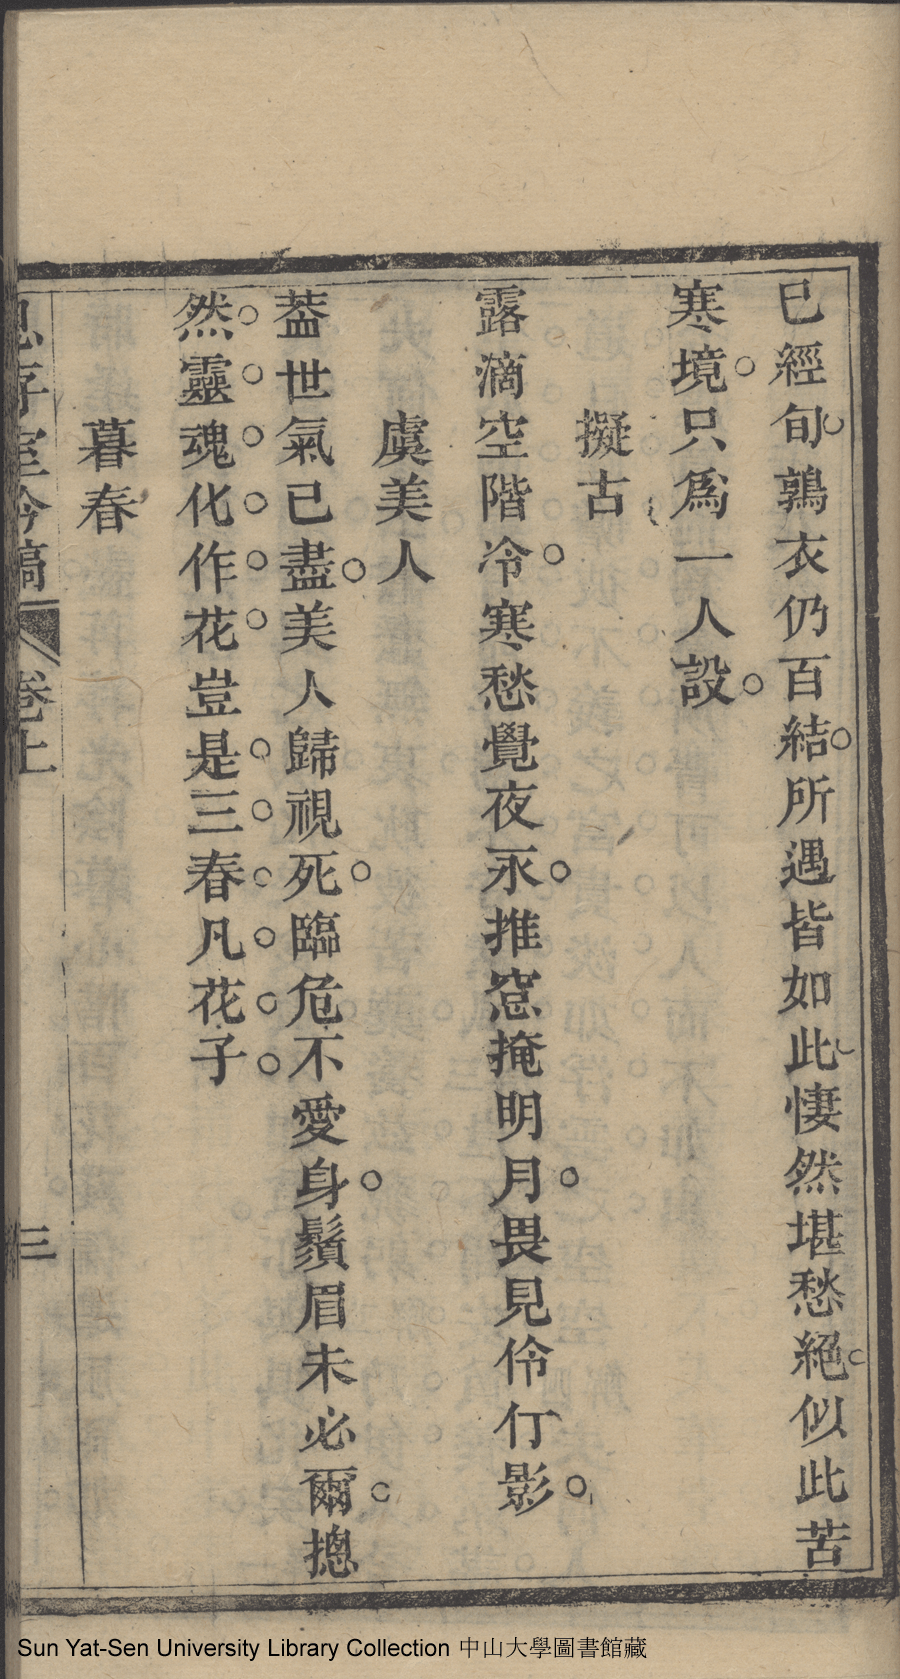 已經旬鶉衣仍百結所遇皆如此悽然堪愁絕似此苦
寒境只爲一人設
擬古
露滴空階冷寒愁覺夜永推窓掩明月畏見伶仃影
虞美人
葢世氣已盡美人歸視死臨危不愛身鬚眉未必爾摠
然靈魂化作花豈是三春凡花子
暮春
存室吟稿 卷上 三
Sun Yat-Sen University Library Collection 中山大學圖書館藏